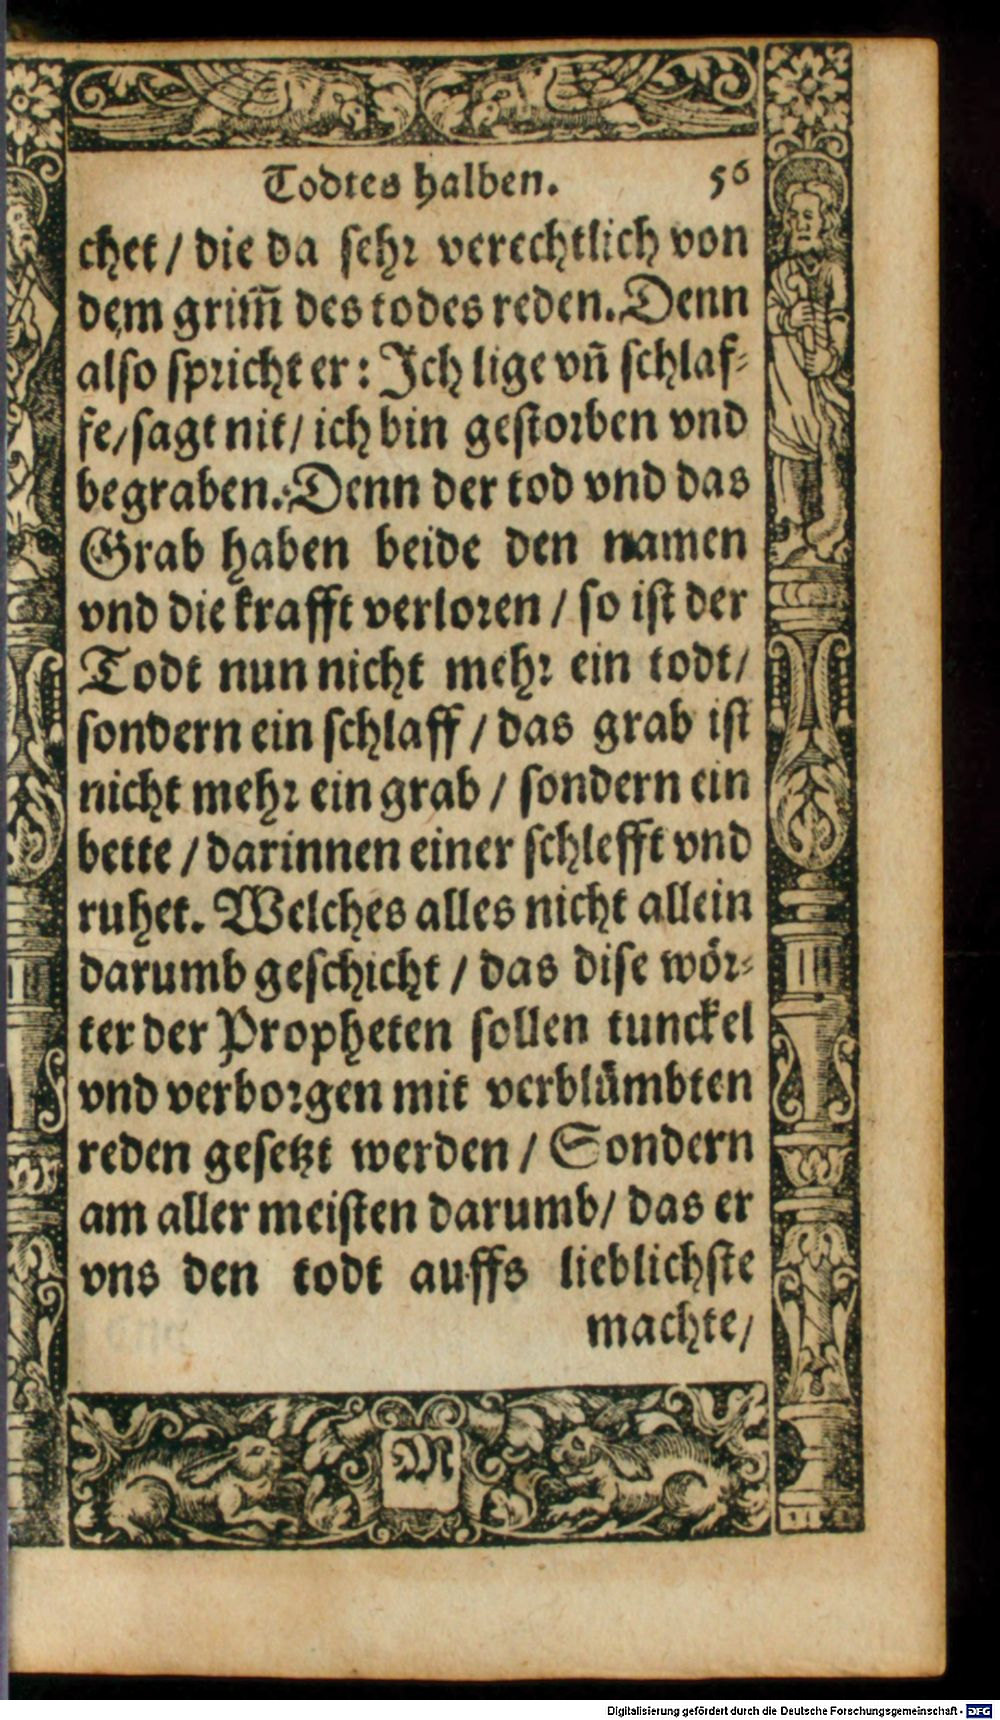 Todtes halben. 56
chet / die da sehr verechtlich von
dem grim̃ des todes reden. Denn
also spricht er: Ich lige vñ schlaf-
fe/sagt nit/ ich bin gestorben vnd
begraben. Denn der tod vnd das
Grab haben beide den namen
vnd die krafft verloren / so ist der
Todt nun nicht mehr ein todt/
sondern ein schlaff / das grab ist
nicht mehr ein grab / sondern ein
bette / darinnen einer schlefft vnd
ruhet. Welches alles nicht allein
darumb geschicht / das dise wör-
ter der Propheten sollen tunckel
vnd verborgen mit verblümbten
reden gesetzt werden / Sondern
am aller meisten darumb/ das er
vns den todt auffs lieblichste
machte/
M
Digitalisierung gefördert durch die Deutsche Forschungsgemeinschaft - DFG